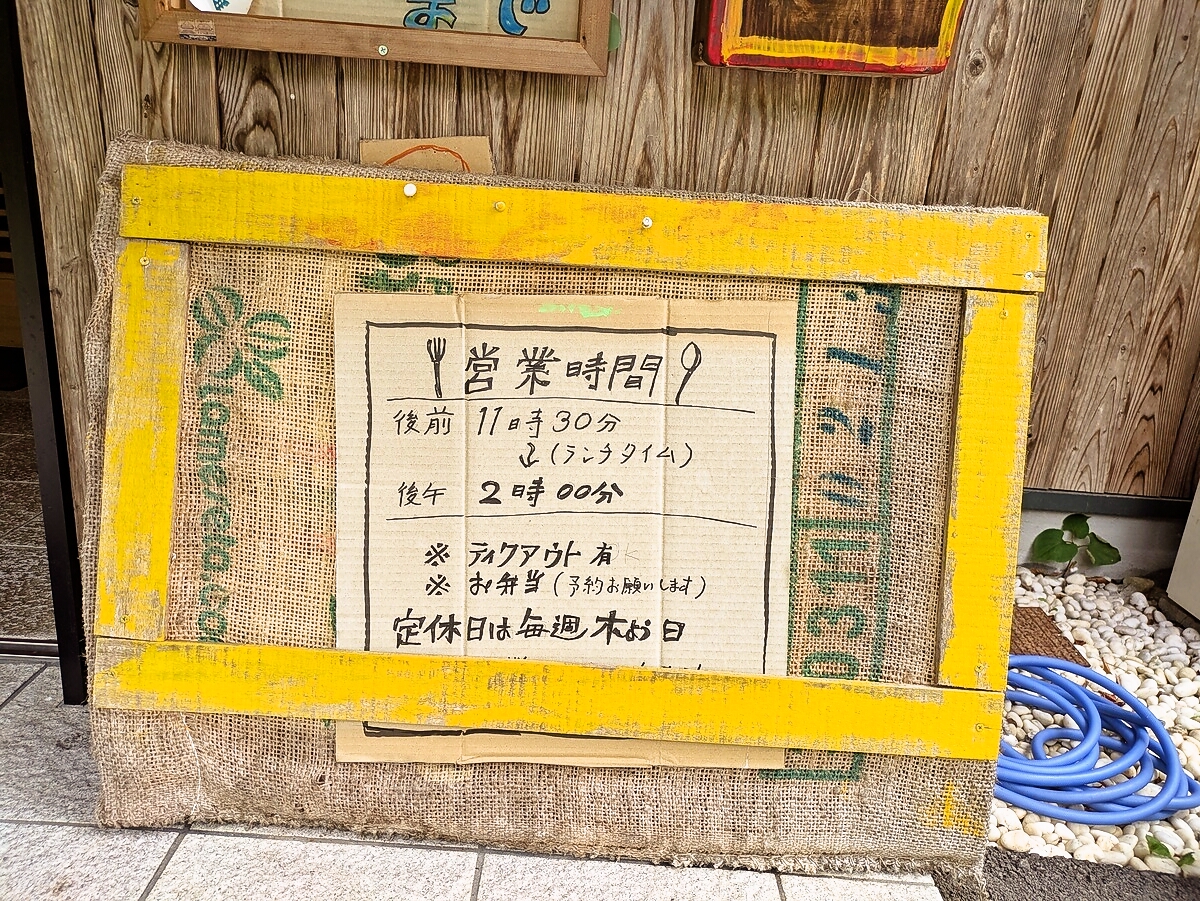 営業時間
後前 11時30分
↓(ランチタイム)
後午 2時00分
※ ティクアウト有
※ お弁当(予約お願いします)
定休日は毎週木よう日